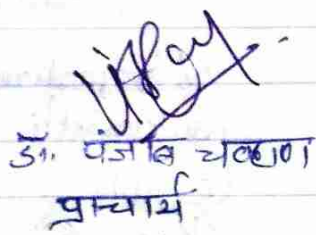 डॉ. पंजाब चव्हाण
प्राचार्य